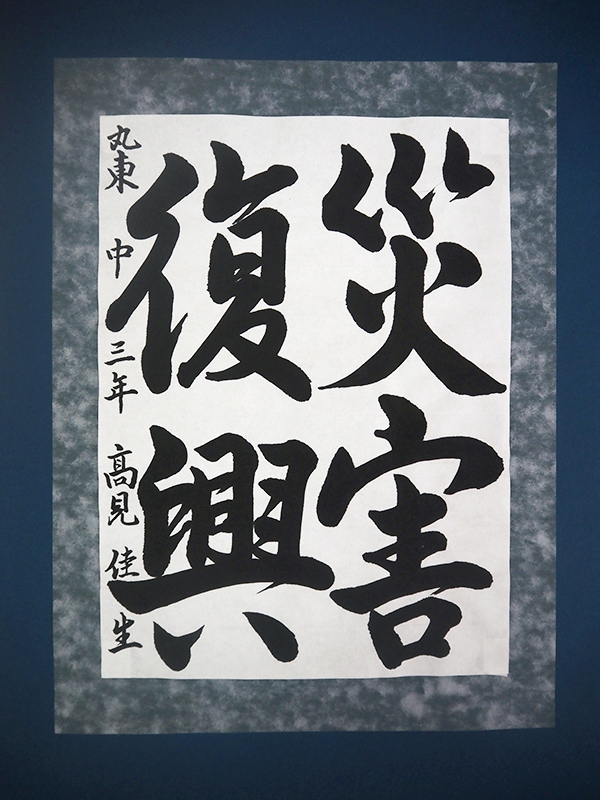 災害
復興
丸東中三年髙見佳生